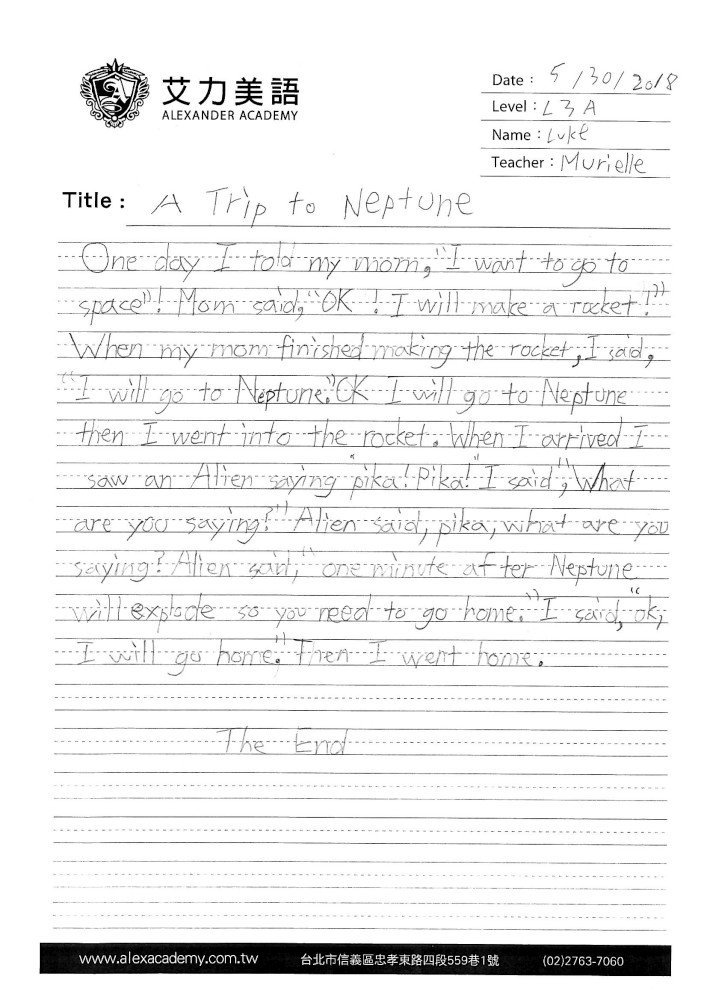 艾力美語
ALEXANDER ACADEMY
Date : 5/30/2018
Level : L3A
Name : Luke
Teacher : Murielle
Title : A Trip to Neptune
One day I told my mom, "I want to go to
space"! Mom said, "OK ! I will make a rocket!"
When my mom finished making the rocket, I said,
"I will go to Neptune." OK I will go to Neptune
then I went into the rocket. When I arrived I
saw an Alien saying "pika! Pika!" I said", What
are you saying?" Alien said, pika, what are you
saying? Alien said, "one minute after Neptune
will explode so you need to go home." I said, "ok,
I will go home." Then I went home.
The End
www.alexacademy.com.tw 台北市信義區忠孝東路四段559巷1號 (02)2763-7060